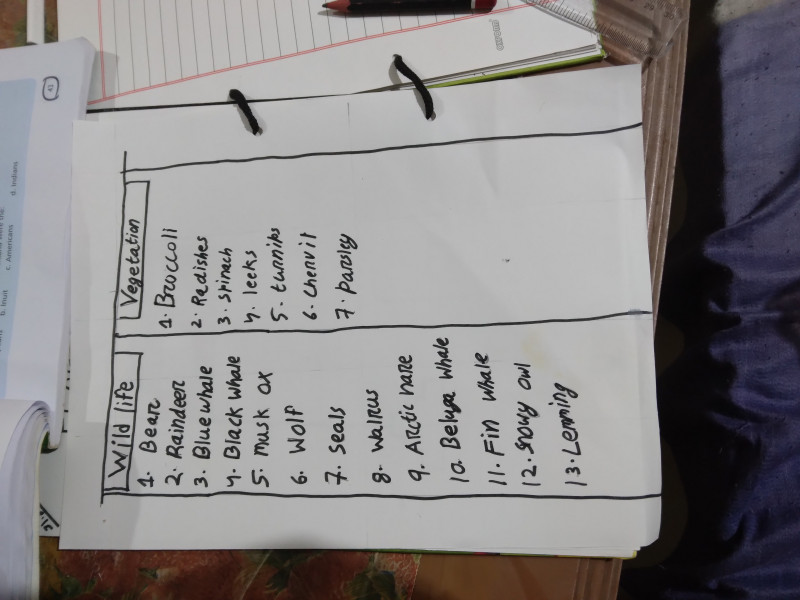 Wild life
1. Bear
2. Raindeer
3. Blue whale
4. Black whale
5. Musk ox
6. Wolf
7. Seals
8. Walrus
9. Arctic hare
10. Beluga whale
11. Fin whale
12. Snowy owl
13. Lemming
Vegetation
1. Broccoli
2. Redishes
3. spinach
4. leeks
5. turnibs
6. Chervil
7. parsley
41
b. Inuit
c. Americans
d. Indians